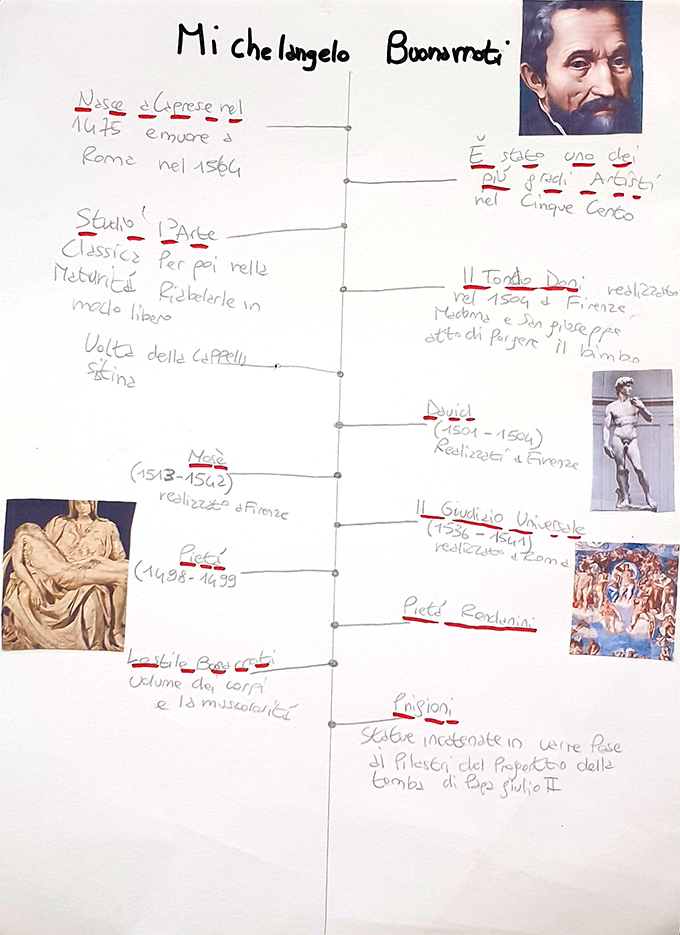 Michelangelo Buonarroti
Nasce a Caprese nel
1475 e muore a
Roma nel 1564
È stato uno dei
più gradi Artisti
nel Cinque Cento
Studio' l'Arte
Classica Per poi nella
Maturitá Riabelarle in
modo libero
Il Tondo Doni realizzato
nel 1504 a Firenze
Madonna e San giuseppe
atto di Porgere il bimbo
Volta della Cappell
sistina
David
(1501-1504)
Realizzati a Firenze
Mosè
(1513-1542)
realizzato a Firenze
Il Giudizio Universale
(1536-1541)
realizzato a Roma
Pietá
(1498-1499
Pietá Rondanini
Lo stile Bonarroti
Volume dei corpi
e la muscolaritá
Prigioni
Statue incatenate in varre Pose
ai Pilastri del Progortto della
tomba di Papa giulio II